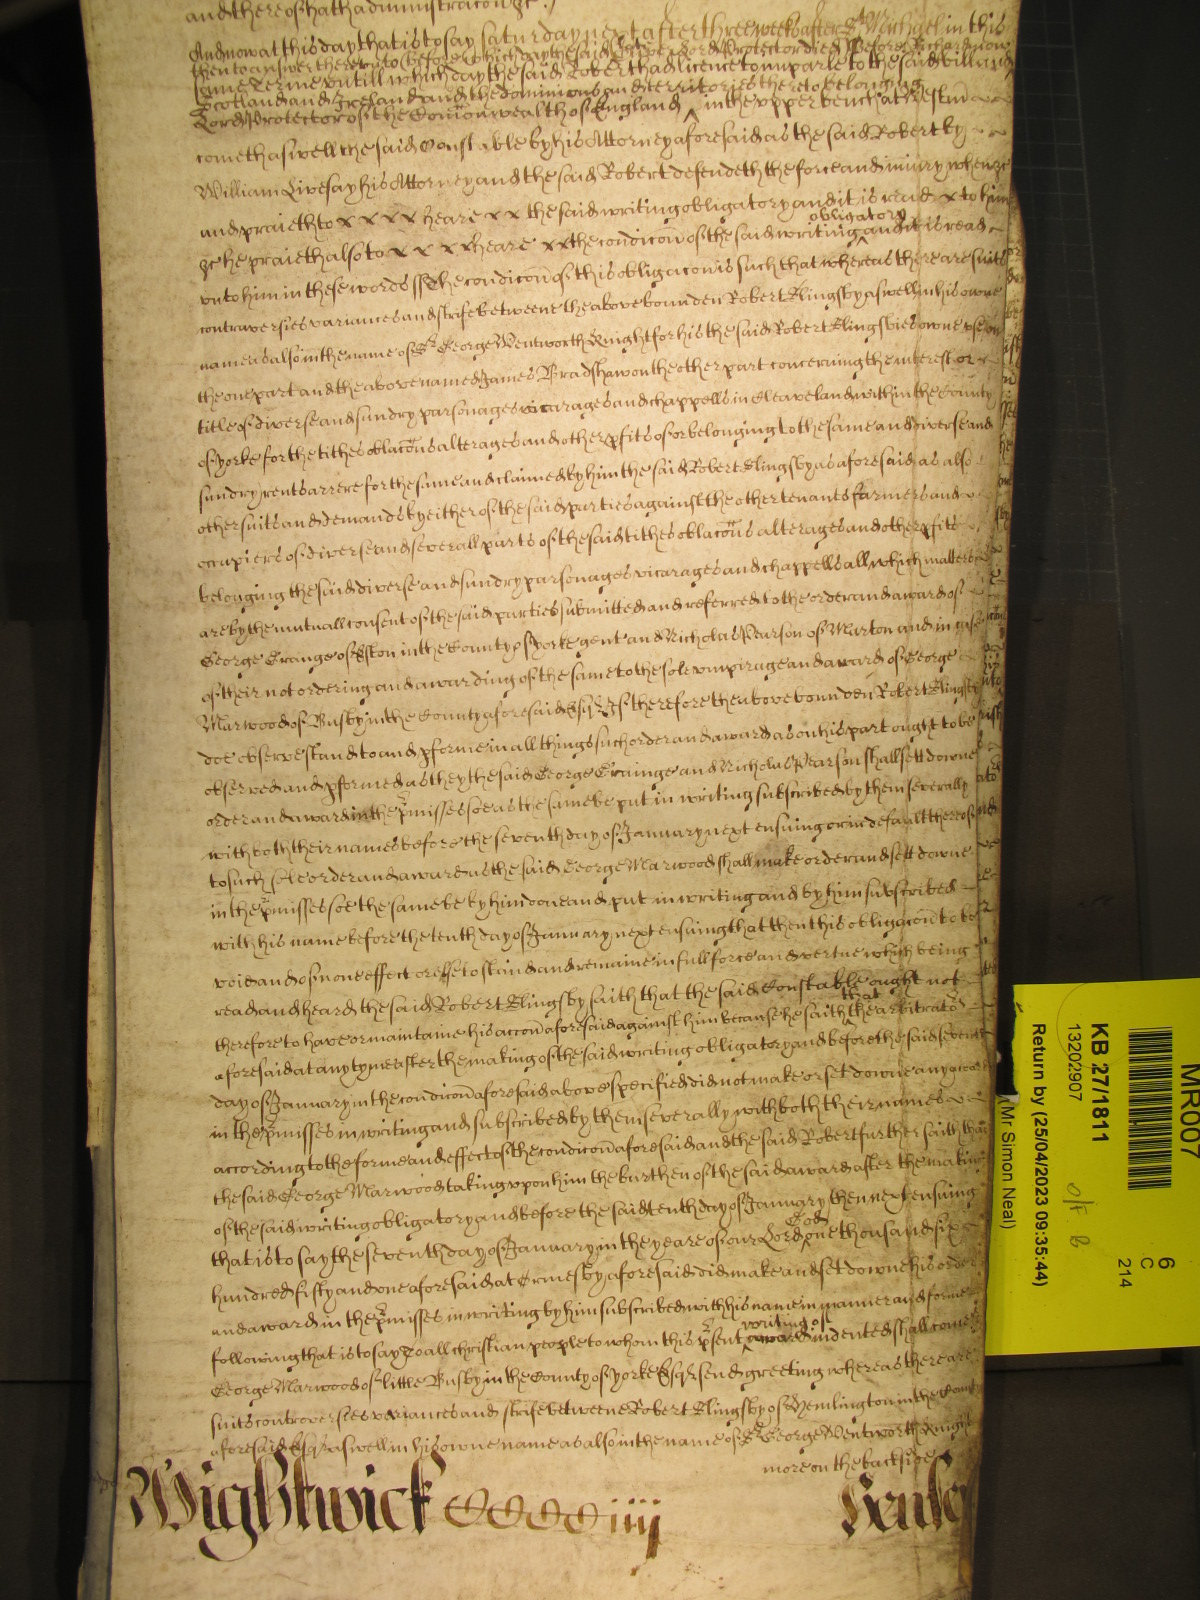 and thereof hath administracon &c
And now at this day that is to say Saturday next after three weekes after St Michael in this
same Terme untill which day the said Robert had licence to imparle to the said bill and
then to answer thereunto &c before which day the said Oliver Lord Protector died &c before Richard now
Lord Protector of the Comonwealth of England Scotland and Ireland and the dominions and territories thereto belonging in the upper bench at Westm
cometh aswell the said Constable by his Attorney aforesaid as the said Robert by
William Livesay his Attorney and the said Robert defendeth the force and iniury when &c
and praieth to x x x x heare x x the said writing obligatory and it is read x to him
&c he praieth also to x x x x heare x x the condicon of the said writing obligatory and it is read
unto him in these words ss The condicon of this obligacon is such that whereas there are suits
contraversies variances and strife betweene the above bounden Robert Slingsby aswell in his owne
name as also in the name of Sr George Wentworth Knight for his the said Robert Slingsbies owne use on
the one part and the above named James Bradshaw on the other part concerning the interest or
title of diverse and sundry parsonages vicarages and chappells in Cleaveland within the County
of yorke for the tithes oblacons alterages and other pfits of or belonging to the same and diverse and
sundry rents arrere for the same and claimed by him the said Robert Slingsby as aforesaid as also
other suits and demands by either of the said parties against the other tenants farmers and
occupiers of diverse and severall parts of the said tithes oblacons alterages and other pfits
belonging the said diverse and sundry parsonages vicarages and chappells all which matters
are by the mutuall consent of the said parties submitted and referred to the order and award of
George Grange of Eston in the County of yorke gent and Nicholas Pearson of Marton and in case
of their not ordering and awarding of the same to the sole umpirage and award of George
Marwood of Busby in the County aforesaid Esqr If therefore the above bounden Robert Slingsby
doe observe stand to and pforme in all things such order and award as on his part ought to be
observed and pformed as they the said George Grainge and Nicholas Pearson shall sett downe
order and award in the pmisses soe as the same be put in writing subscribed by them severally
with both their names before the seventh day of January next ensuing or in default thereof
to such sole order and award as the said George Marwood shall make order and sett downe
in the pmisses soe the same be by him done and put in writing and by him subscribed
with his name before the tenth day of January next ensuing that then this obligacon to be
void and of none effect or else to stand and remaine in full force and vertue which being
read and heard the said Robert Slingsby saith that the said Constable ought not
therefore to have or maintaine his accon aforesaid against him because he saith that the arbitrators
aforesaid at any tyme after the making of the said writing obligatory and before the said seventh
day of January in the condicon aforesaid above specified did not make or set downe any
in the pmisses in writing and subscribed by them severally with both their names
according to the forme and effect of the condicon aforesaid and the said Robert further saith that
the said George Marwood taking upon him the burthen of the said award after the making
of the said writing obligatory and before the said tenth day of January then next ensuing
that is to say the seventh day of January in the yeare of our Lord God one thousand six
hundred fifty and one aforesaid at Ormesby aforesaid did make and set downe his order
and award in the pmisses in writing by him subscribed with his name in manner and forme
following that is to say To all christian people to whom this psent writing of award indented shall come
George Marwood of little Busby in the County of yorke Esqr send greeting whereas there are
suits controversies variances and strife betweene Robert Slingsby of Hemlington in the County
aforesaid Esqr aswell in his owne name as also in the name of Sr George Wentworth Knight
more on the backside
Wightwick
iiij
MR007
6
C
214
KB 27/1811
13202907
O/F B
Return by (25/04/2023 09:35:44)
(Mr Simon Neal)